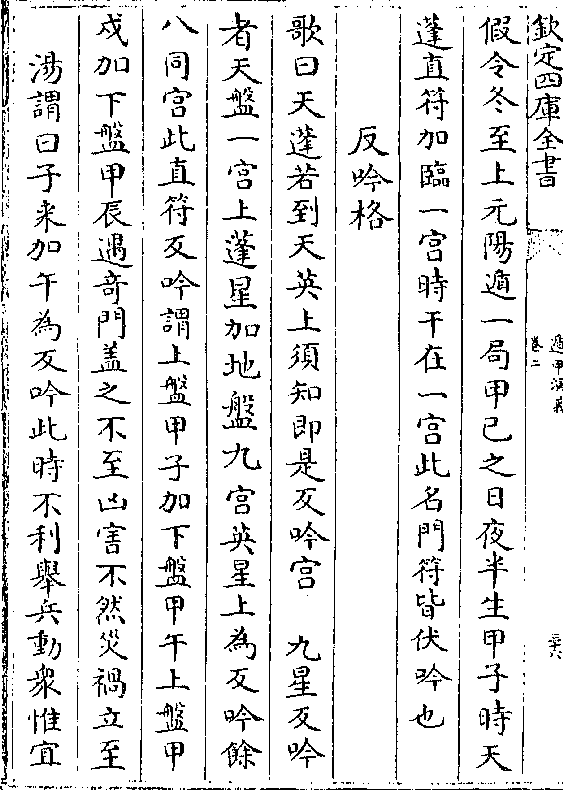 欽定四庫全書
遁甲演義
卷二
三六
假令冬至上元陽遁一局甲己之日夜半生甲子時天
蓬直符加臨一宮時干在一宮此名門符皆伏吟也
反吟格
歌曰天蓬若到天英上須知即是反吟宮　九星反吟
者天盤一宮上蓬星加地盤九宮英星上為反吟餘
八同宮此直符反吟謂上盤甲子加下盤甲午上盤甲
戍加下盤甲辰遇奇門盖之不至凶害不然災禍立至
湯謂曰子来加午為反吟此時不利舉兵動衆惟宜